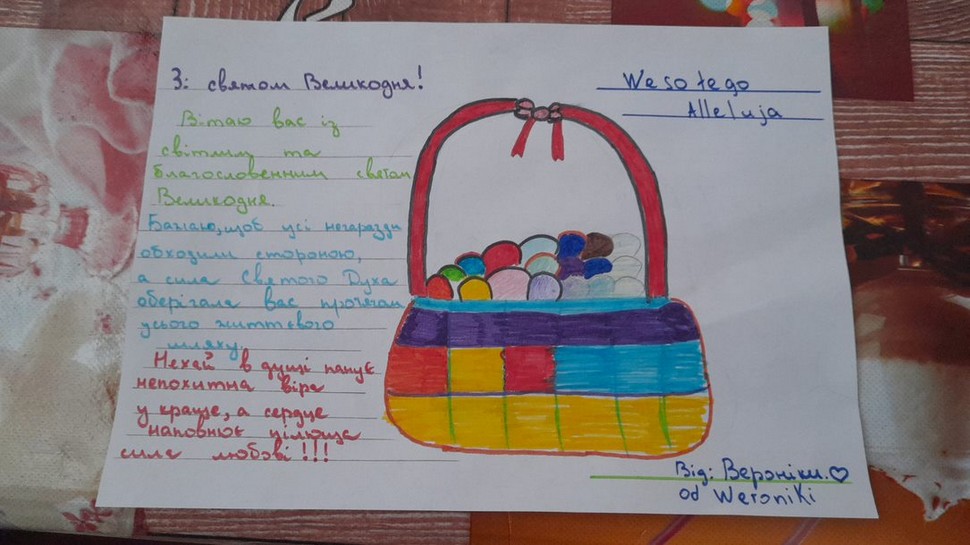 З: святом Великодня!
Вітаю вас із
світлим та
благословенним святом
Великодня.
Бажаю, щоб усі негаразди
обходили стороною,
а сила Святого Духа
оберігала вас протягом
усього життєвого
шляху.
Нехай в душі панує
непохитна віра
у краще, а сердце
наповнює цілюща
сила любові!!!
Wesołego
Alleluja
Від: Вероніки.♡
od WeroniKi